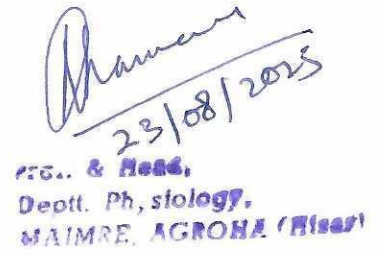 23/08/2025
Prof. & Head,
Deptt. Ph,siology,
MAIMRE, AGROHA (Hisar)